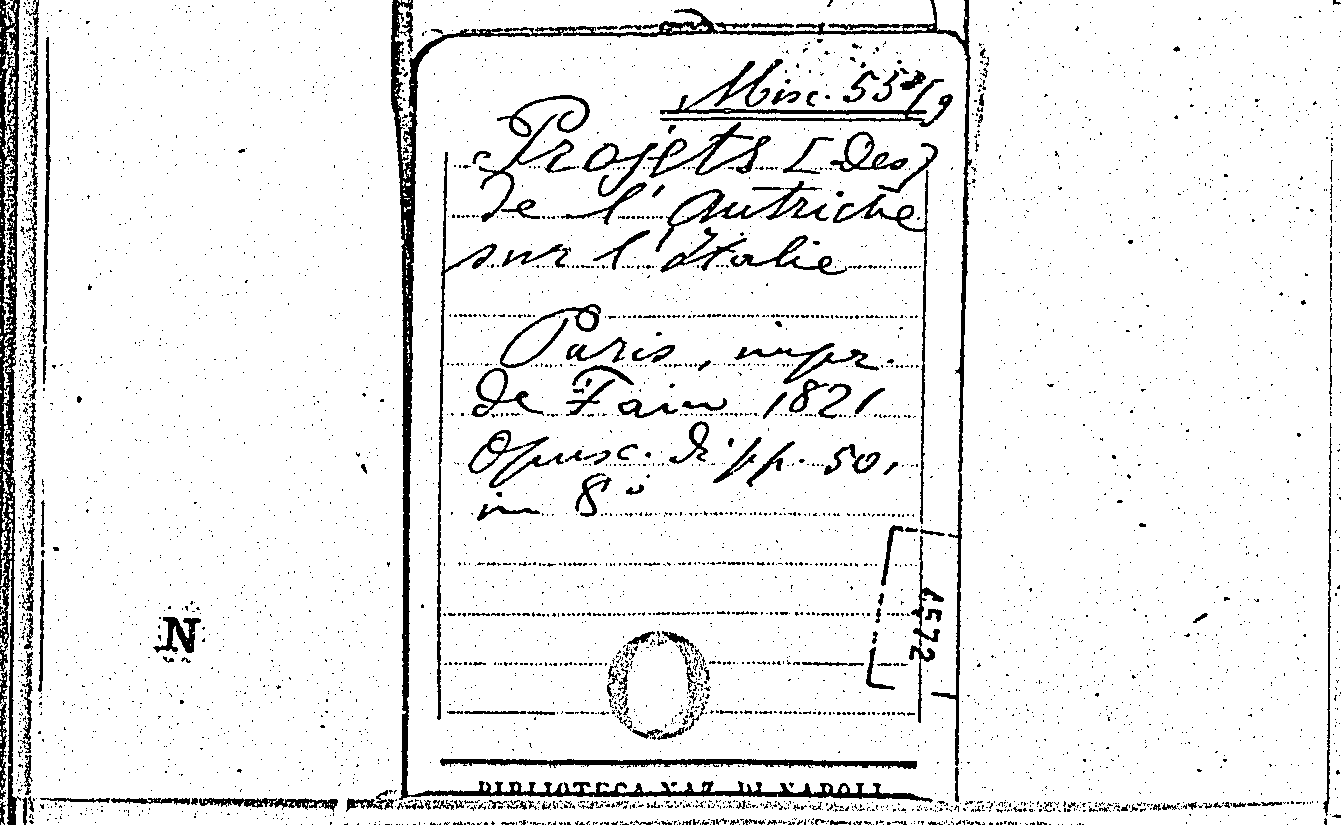 Misc. 558/9
Projets [Des]
de l'Autriche
sur l'Italie
Paris, impr.
de Fain 1821
Opusc. di pp. 50,
in 8°
N
4572
BIBLIOTECA NAZ. DI NAPOLI